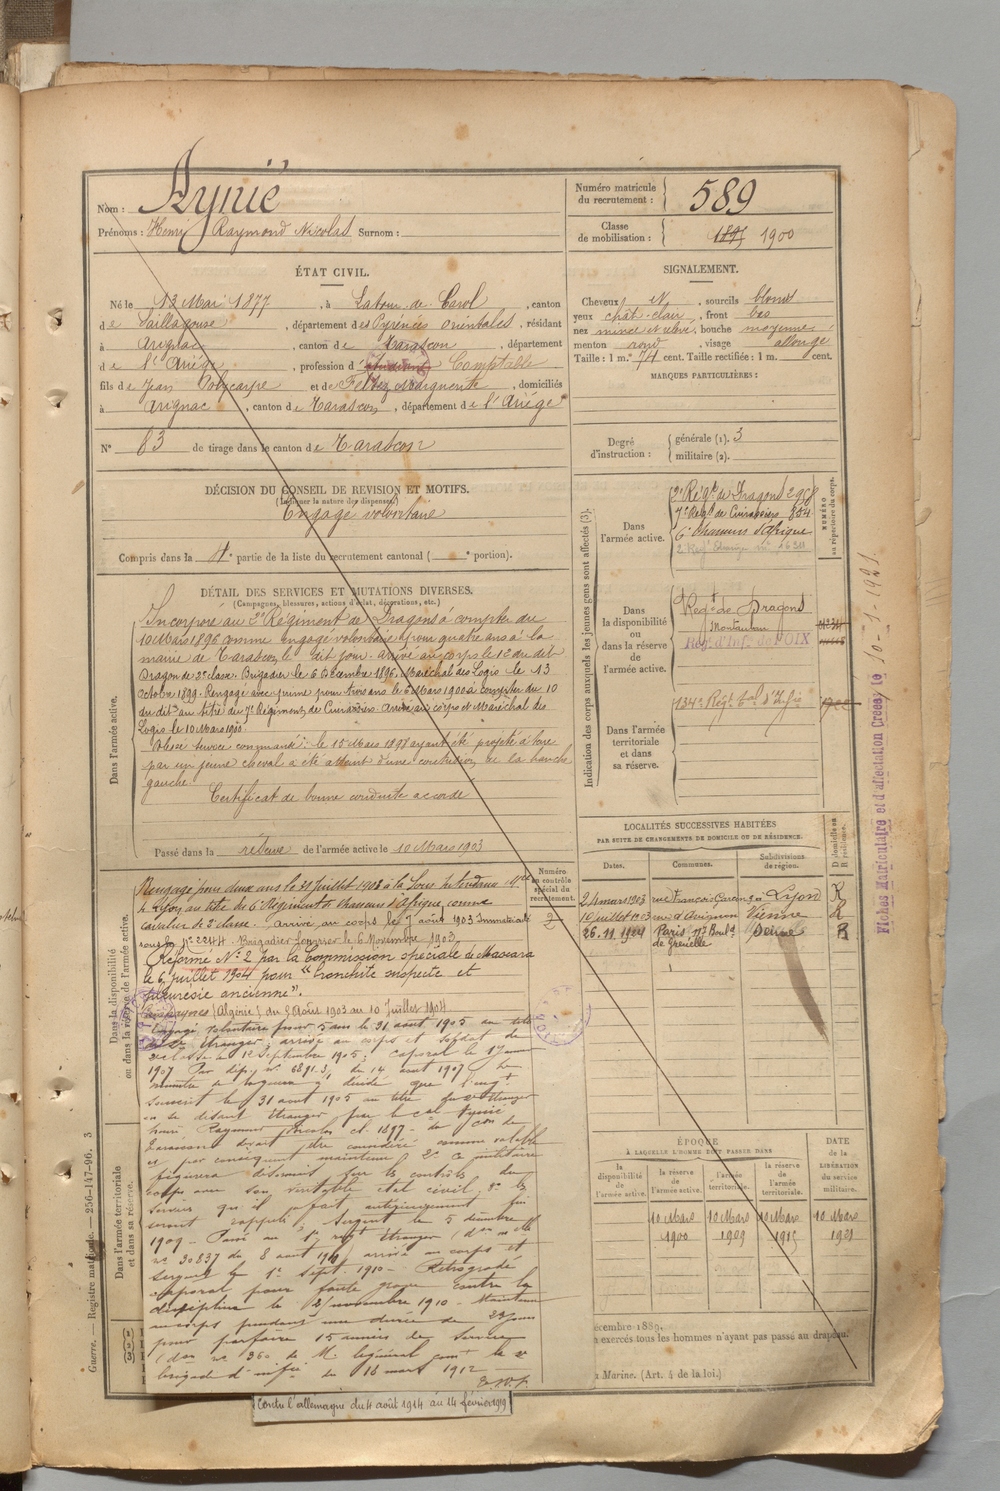 Nom : Aynié
Prénoms : Henri Raymond Nicolas Surnom :
Numéro matricule du recrutement : 589
Classe de mobilisation : 1897 1900
ÉTAT CIVIL.
Né le 13 Mai 1877, à Latour-de-Carol, canton
de Saillagouse, département des Pyrénées Orientales, résidant
à Arignac, canton de Tarascon, département
de l'Ariège, profession d'étudiant Comptable
fils de Jean Polycarpe et de Marguerite, domiciliés
à Arignac, canton de Tarascon, département de l'Ariège
N° 83 de tirage dans le canton de Tarascon
SIGNALEMENT.
Cheveux N, sourcils blonds
yeux chât-clair, front bas
nez mince et relevé, bouche moyenne,
menton rond, visage allongé
Taille : 1 m. 74 cent. Taille rectifiée : 1 m. cent.
MARQUES PARTICULIÈRES :
Degré d'instruction : générale (1). 3
militaire (2).
DÉCISION DU CONSEIL DE REVISION ET MOTIFS.
(Indiquer la nature des dispenses)
Engagé volontaire
Compris dans la 4e partie de la liste du recrutement cantonal ( e portion).
DÉTAIL DES SERVICES ET MUTATIONS DIVERSES.
(Campagnes, blessures, actions d'éclat, décorations, etc.)
Dans l'armée active.
Incorporé au 2e Régiment de Dragons à compter du
10 Mars 1896 comme engagé volontaire pour quatre ans à la
mairie de Tarascon, le dit jour. Arrivé au corps le 12 du dit
Dragon de 2e classe. Brigadier le 6 Décembre 1896. Maréchal des Logis le 13
Octobre 1899. Rengagé avec prime pour trois ans le 6 Mars 1900 à compter du 10
du dit au titre du 7e Régiment de Cuirassiers. Arrivé au corps et Maréchal des
Logis le 10 Mars 1900.
Blessé service commandé : le 15 Mars 1898 ayant été projeté à terre
par un jeune cheval a été atteint d'une contusion de la hanche
gauche.
Certificat de bonne conduite accordé
Passé dans la réserve de l'armée active le 10 Mars 1903
Indication des corps auxquels les jeunes gens sont affectés (3).
NUMÉRO au répertoire du corps.
Dans l'armée active.
2e Régt de Dragons 2958
7e Régt de Cuirassiers 854
6e Chasseurs d'Afrique
2 Regt Etranger
Dans la disponibilité ou dans la réserve de l'armée active.
Régt de Dragons
Montauban
Régt d'Infie de FOIX
Dans l'armée territoriale et dans sa réserve.
134e Régt Tal d'Infie
Fiches Matriculaire et d'affectation Créées le 10-1-1921.
LOCALITÉS SUCCESSIVES HABITÉES
PAR SUITE DE CHANGEMENTS DE DOMICILE OU DE RÉSIDENCE.
Dates. Communes. Subdivisions de région. D domicile ou R résidence.
24 mars 1903 Lyon R
10 juillet 1903 rue d'Avignon Vienne R
26.11.1924 Paris, 117 Boulrd de Grenelle Seine R
Numéro au contrôle spécial du recrutement.
Dans la disponibilité ou dans la réserve de l'armée active.
Rengagé pour deux ans le 31 Juillet 1903 à la Sous Intendance
de Lyon au titre du 6e Régiment de Chasseurs d'Afrique comme
cavalier de 2e classe. Arrivé au corps le 7 août 1903 Immatriculé
sous le N° 2244. Brigadier fourrier le 6 Novembre 1903
Réformé N° 2 par la Commission spéciale de Mascara
le 6 juillet 1904 pour "Bronchite suspecte et
pleurésie ancienne".
Campagnes (Algérie) du 3 Août 1903 au 10 Juillet 1904
Engagé volontaire pour 5 ans le 31 aout 1905 au titre
du 2e Etranger ; arrivé au corps et soldat de
2e classe le 12 Septembre 1905 ; caporal le 17
1907. Par dép. n° 6891.3, du 14 aout 1907, le
ministre de la guerre a décidé que l'engt
souscrit le 31 aout 1905 au titre du 2e Etranger
en se disant étranger par le cal Aynié
Henri Raymond Nicolas cl. 1897 - de Con de
Tarascon devait être considéré comme valable
et par conséquent maintenu, 2° Ce militaire
figurera désormais sur les contrôles du
corps avec son véritable état civil, 3° les
services qu'il a fait antérieurement lui
seront rappelés. Sergent le 5 décembre
1909 - Passé au 1er regt Etranger
n° 30837 du 8 août 1910) arrivé au corps et
sergent le 1er Sept. 1910 - Rétrogradé
caporal pour faute grave contre la
discipline le 21 novembre 1910 - Maintenu
au corps pendant une durée de 29 jours
pour parfaire 15 années de services
n° 360 de M. le général comt la 2e
brigade d'infie du 18 mars 1912
Contre l'allemagne du 4 août 1914 au 14 février 1919
Dans l'armée territoriale et dans sa réserve.
Guerre. — Registre matricule. — 256-147-96. 3
ÉPOQUE
À LAQUELLE L'HOMME DOIT PASSER DANS
la disponibilité de l'armée active. la réserve de l'armée active. l'armée territoriale. la réserve de l'armée territoriale.
DATE de la LIBÉRATION du service militaire.
10 Mars 1900 10 Mars 1909 10 Mars 1915 10 Mars 1921
écembre 1889.
exercés tous les hommes n'ayant pas passé au drapeau.
Marine. (Art. 4 de la loi.)